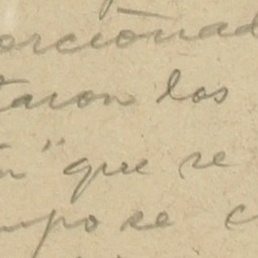 orcionad
taron los
n" que se
mpo se c